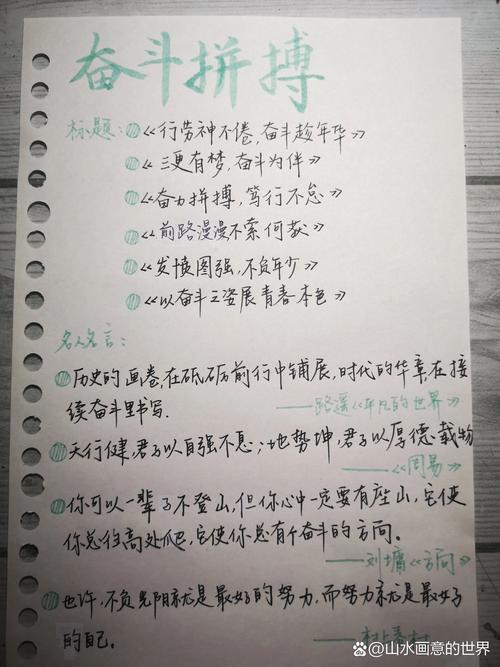 奋斗拼搏
标题：《行劳神不倦，奋斗趁年华》
《三更有梦，奋斗为伴》
《奋力拼搏，笃行不怠》
《前路漫漫不索何获》
《发愤图强，不负年少》
《以奋斗之姿展青春本色》
名人名言：
历史的画卷，在砥砺前行中铺展，时代的华章，在接
续奋斗里书写.
——路遥《平凡的世界》
天行健，君子以自强不息；地势坤，君子以厚德载物
——《周易》
你可以一辈子不登山，但你心中一定要有座山，它使
你总往高处爬，它使你总有个奋斗的方向。
——刘墉《方向》
也许，不负光阴就是最好的努力，而努力就是最好
的自己。
——村上春树
@山水画意的世界